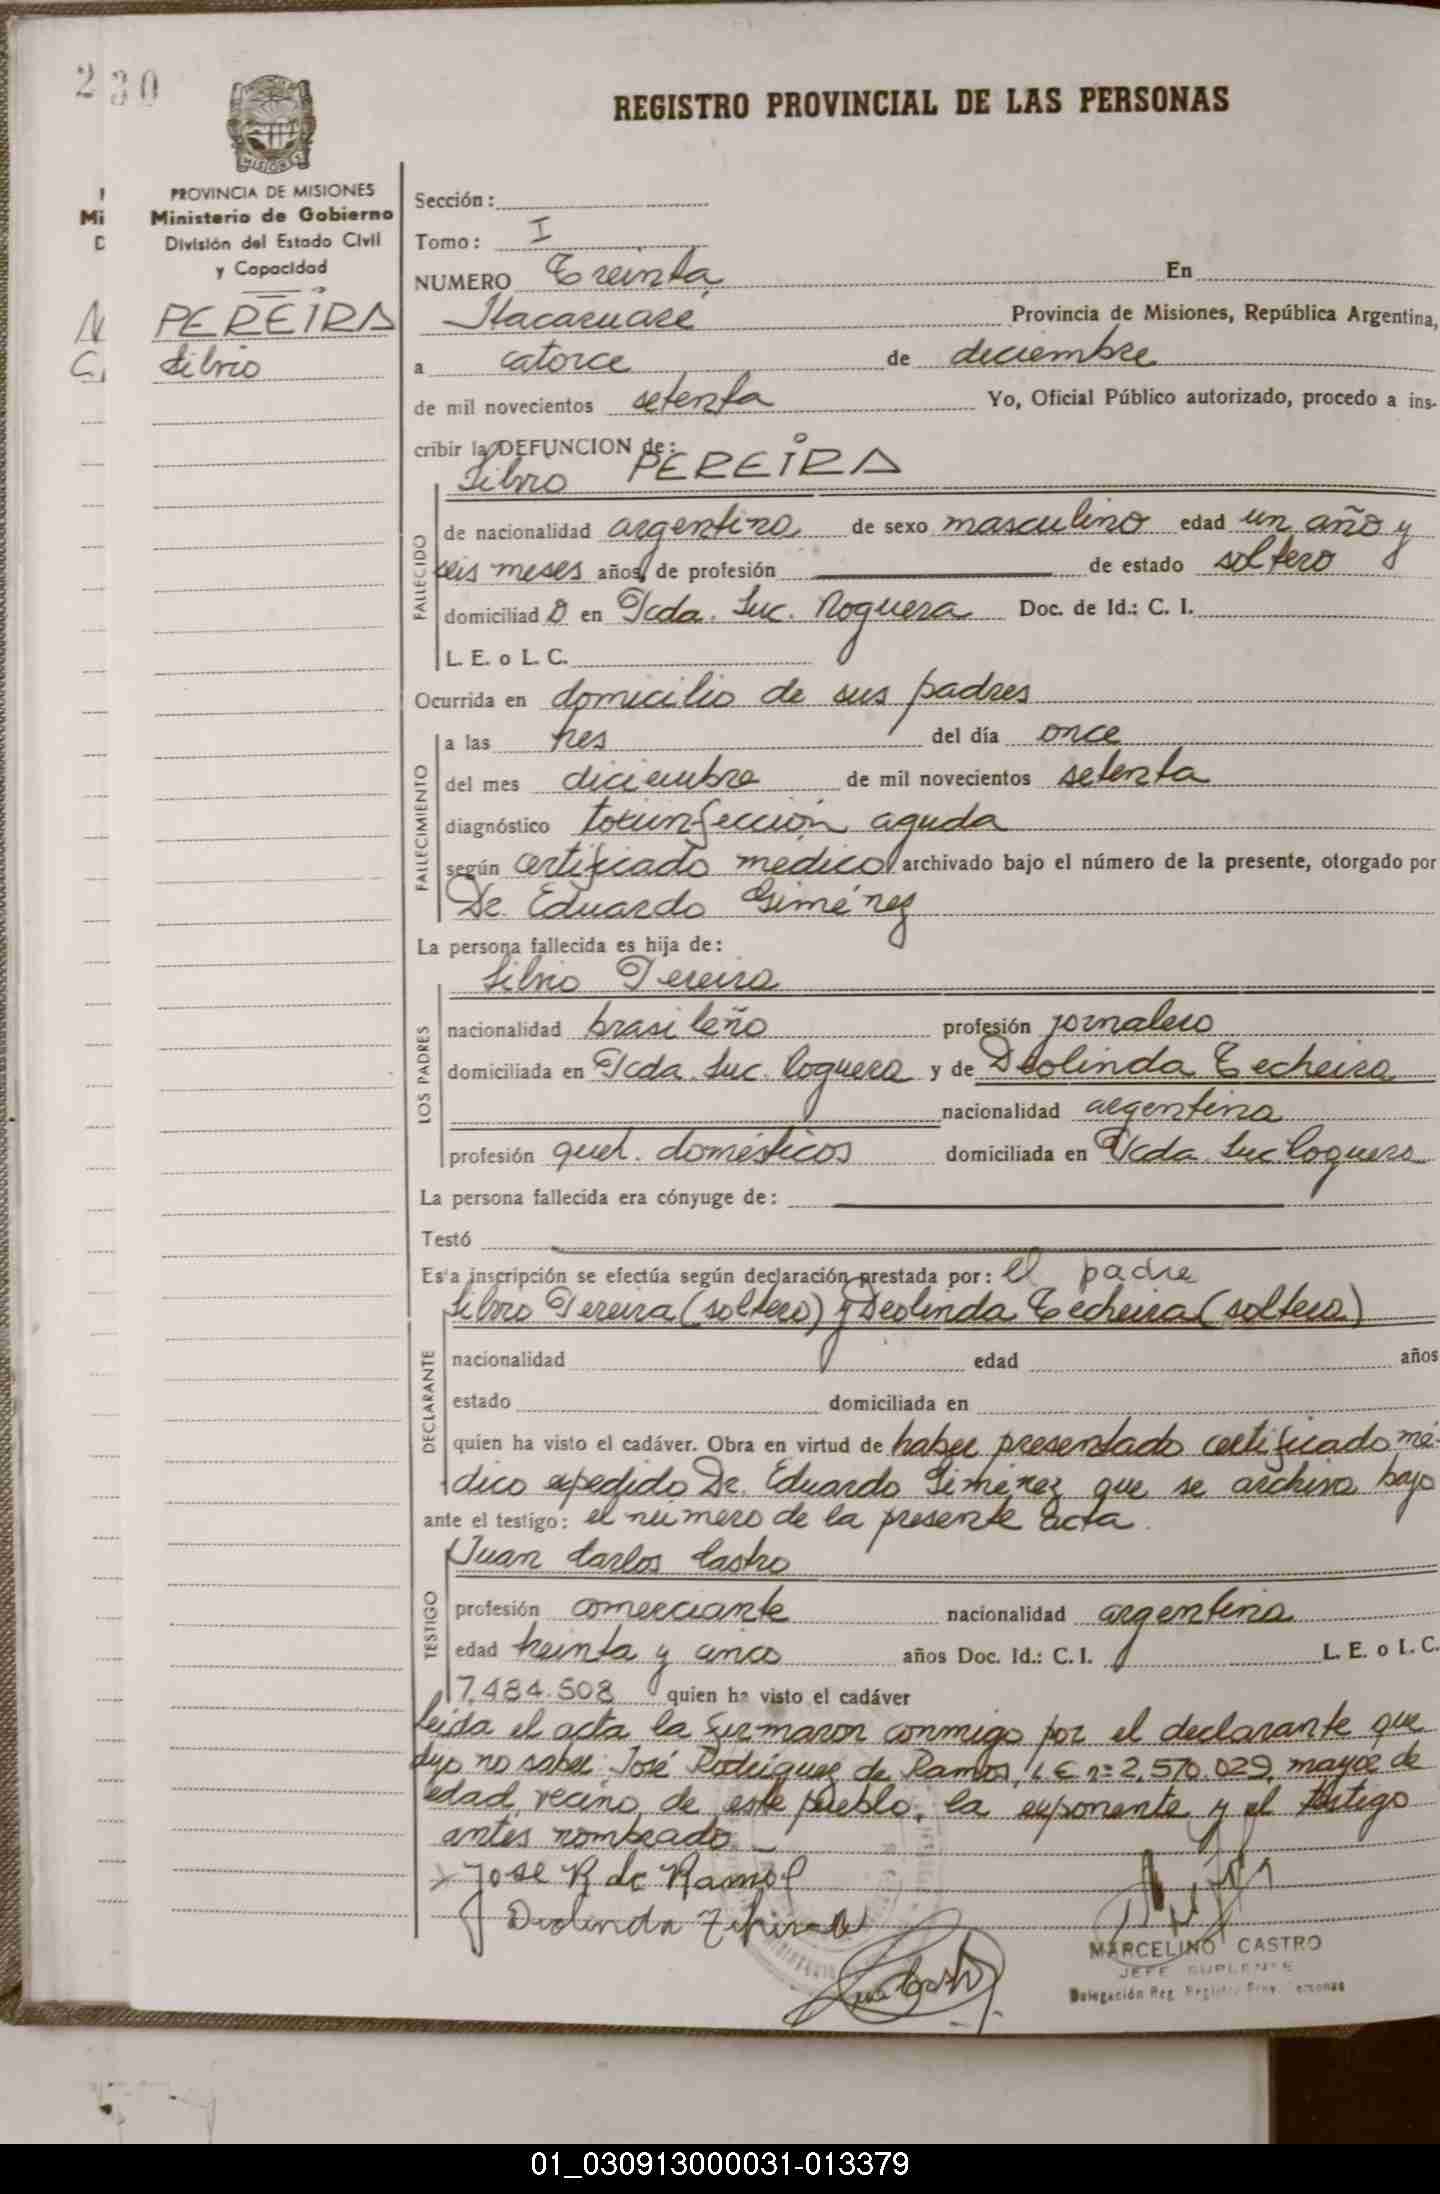 230
REGISTRO PROVINCIAL DE LAS PERSONAS
MISIONES
PROVINCIA DE MISIONES
Ministerio de Gobierno
División del Estado Civil
y Capacidad
PEREIRA
Silvio
Sección:
Tomo: I
NUMERO Treinta En
Itacaruaré Provincia de Misiones, República Argentina,
a catorce de diciembre
de mil novecientos setenta Yo, Oficial Público autorizado, procedo a ins-
cribir la DEFUNCION de:
Silvio PEREIRA
FALLECIDO
de nacionalidad argentina de sexo masculino edad un año y
seis meses años, de profesión de estado soltero
domiciliad o en Pcda. Suc. Noguera Doc. de Id.: C. I.
L. E. o L. C.
Ocurrida en domicilio de sus padres
FALLECIMIENTO
a las tres del día once
del mes diciembre de mil novecientos setenta
diagnóstico toxiinfección aguda
según certificado médico archivado bajo el número de la presente, otorgado por
Dr. Eduardo Giménez
La persona fallecida es hija de:
Silvio Pereira
LOS PADRES
nacionalidad brasileño profesión jornalero
domiciliada en Pcda. Suc. Noguera y de Deolinda Techeira
nacionalidad argentina
profesión queh. domésticos domiciliada en Pcda. Suc Noguera
La persona fallecida era cónyuge de:
Testó
Esta inscripción se efectúa según declaración prestada por: el padre
Silvio Pereira (soltero) y Deolinda Techeira (soltera)
DECLARANTE
nacionalidad edad años
estado domiciliada en
quien ha visto el cadáver. Obra en virtud de haber presentado certificado mé-
dico expedido Dr. Eduardo Giménez que se archiva bajo
ante el testigo: el número de la presente acta.
Juan Carlos Castro
TESTIGO
profesión comerciante nacionalidad argentina
edad treinta y cinco años Doc. Id.: C. I. L. E. o L. C.
7.484.508 quien ha visto el cadáver
Leída el acta la firmaron conmigo por el declarante que
dijo no saber: José Rodríguez de Ramos, L.E nº 2.570.029, mayor de
edad, vecino de este pueblo, la exponente y el testigo
antes nombrado.
Jose R de Ramos
Deolinda
MARCELINO CASTRO
JEFE SUPLENTE
Delegación Reg.
01_030913000031-013379